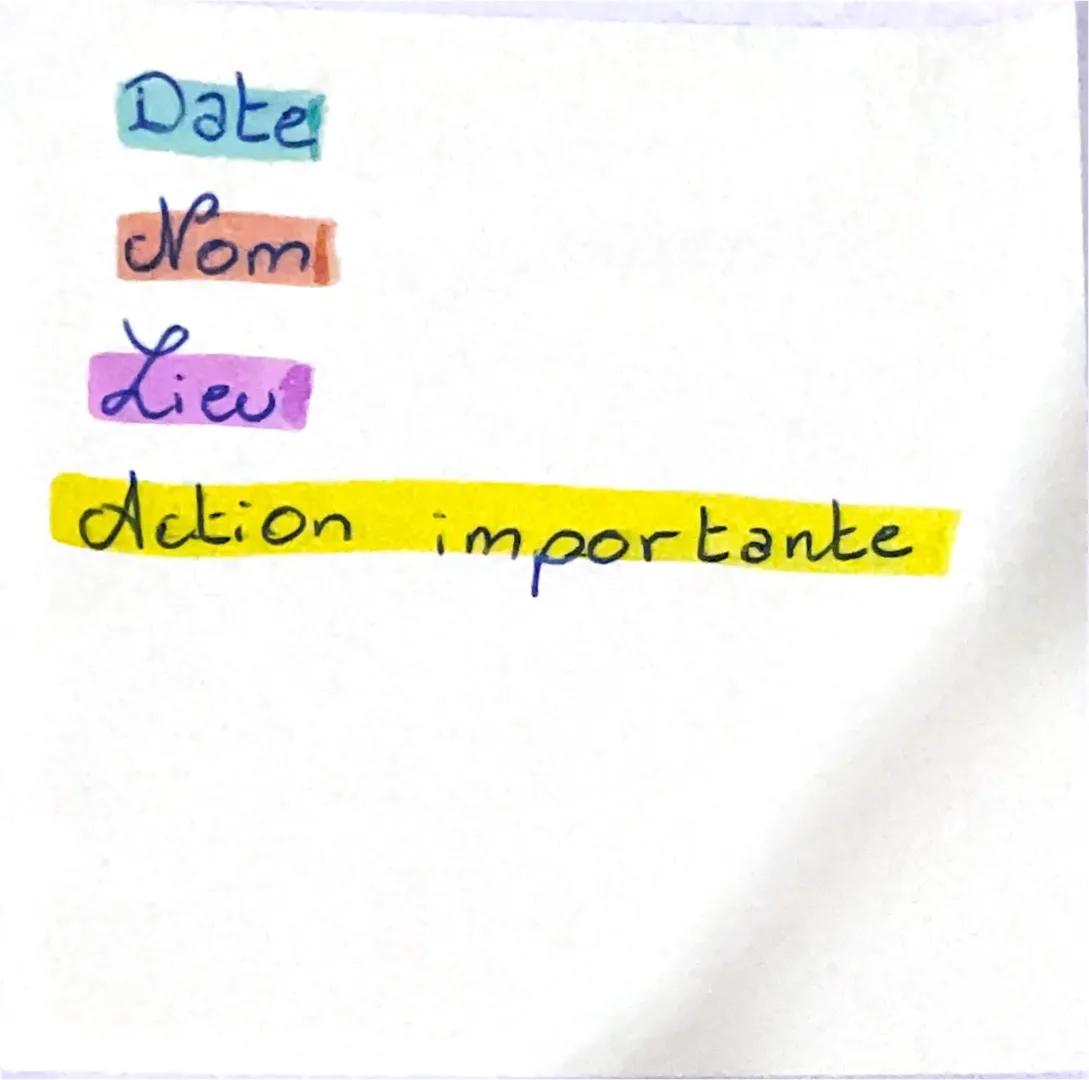 Date
Nom
Lieu
Action importante